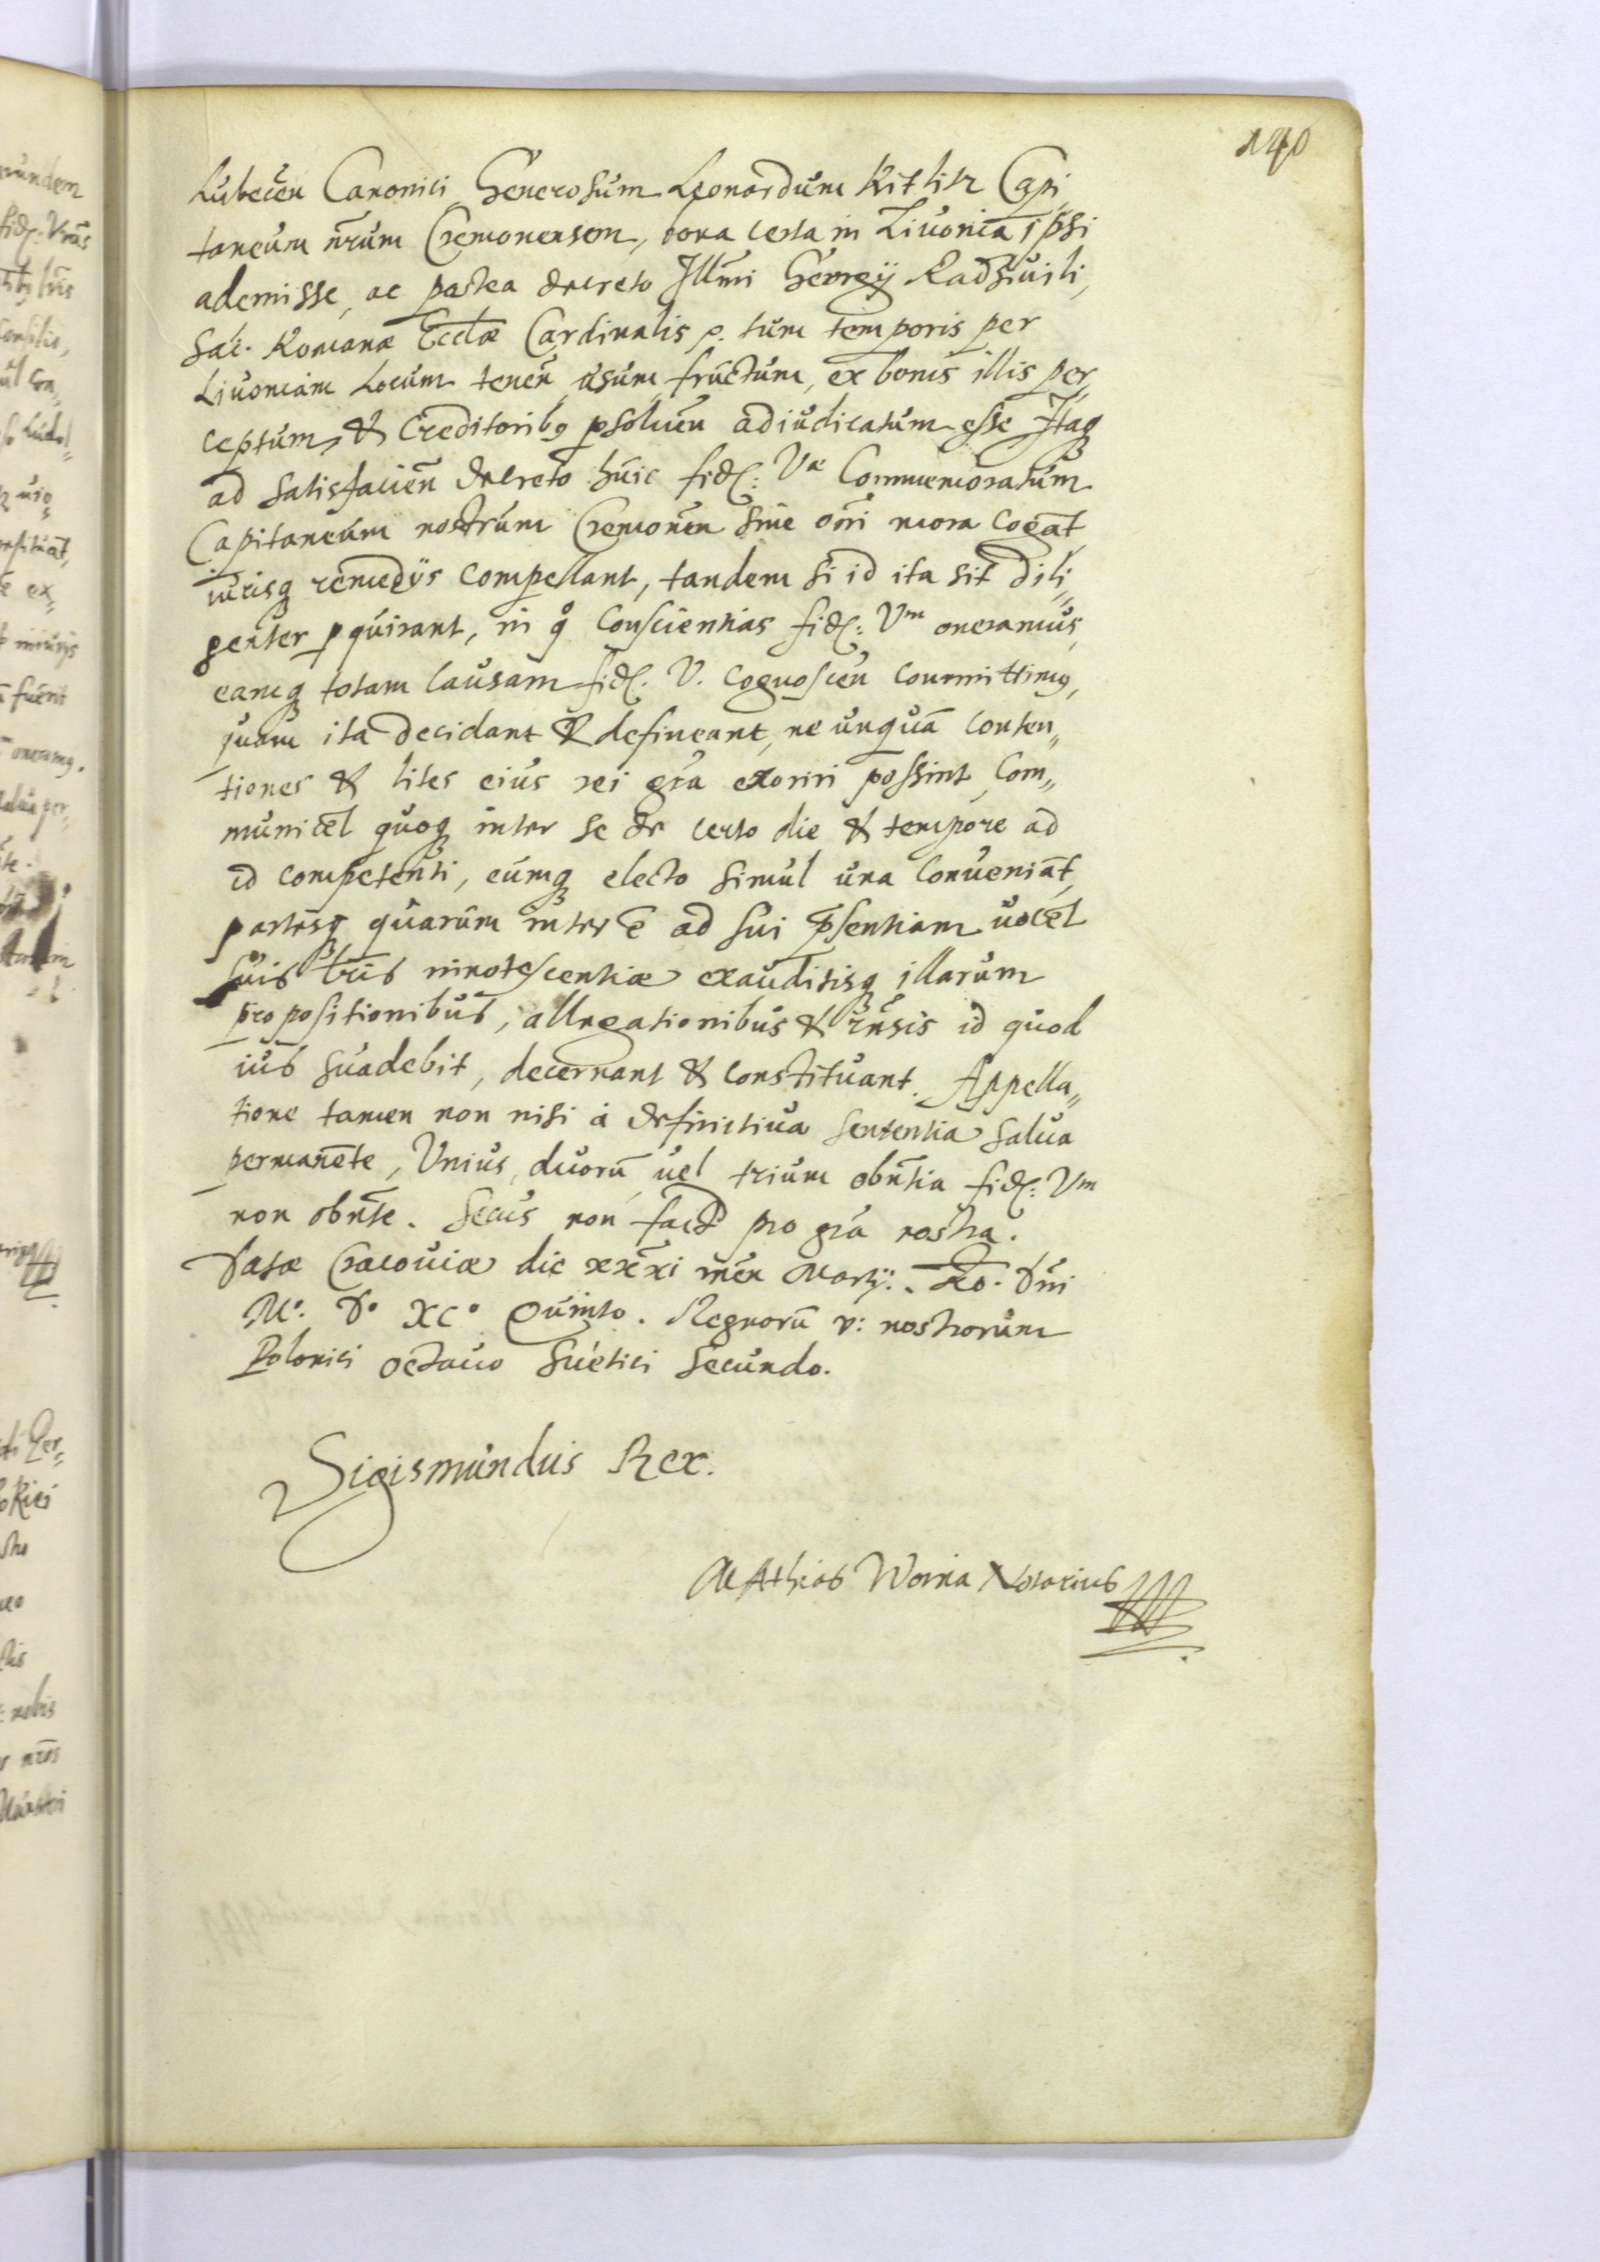 140
Lubecen̄ Canonici, Generosum Leonardum Kitlitz Capi„
taneum nr̄um Cremonensem, bona certa in Livonia ipsi
ademisse, ac postea decreto Illmi Georgij Radziuili,
Sac. Romanæ Eccl̄æ Cardinalis p. tum temporis per
Livoniam Locum tenen̄ usum fructum, ex bonis illis per„
ceptum, & Creditorib9 psoluen̄ adiudicatum esse Itaq
ad satisfacien̄ decreto huic fid: Væ Commemoratum
Capitaneum nostrum Cremonen̄ sine om̄i mora cogāt
iurisq remedijs compellant, tandem si id ita sit dili„
genter pquirant, in q° Conscientias fid: Vm oneramus,
eamq totam causam fid: V. cognoscen̄ committim9,
quam ita decidant & defineant, ne unquā conten„
tiones & lites eius rei gr̄a exoriri possint, Com„
municēt quoq inter se de certo die & tempore ad
id competenti, eumq electo simul una conveniāt,
partesq quarum inter ē ad sui p̄sentiam vocēt
suis lr̄is innotescentiæ exauditisq illarum
propositionibus, allegationibus & rn̄sis id quod
ius suadebit, decernant & constituant. Appella„
tione tamen non nisi à definitiua sententia salua
permanēte, Vnius, duorū uel trium obn̄tia fid: Vm
non obn̄te. Secus non fact pro gr̄a nostra.
Datæ Cracouiæ die xxxi men̄ Martij. Ao. Dni
M°. D° XC° Quinto. Regnorū v: nostrorum
Polonici octauo Suetici secundo.
Sigismundus Rex.
Mathias Woina Notarius